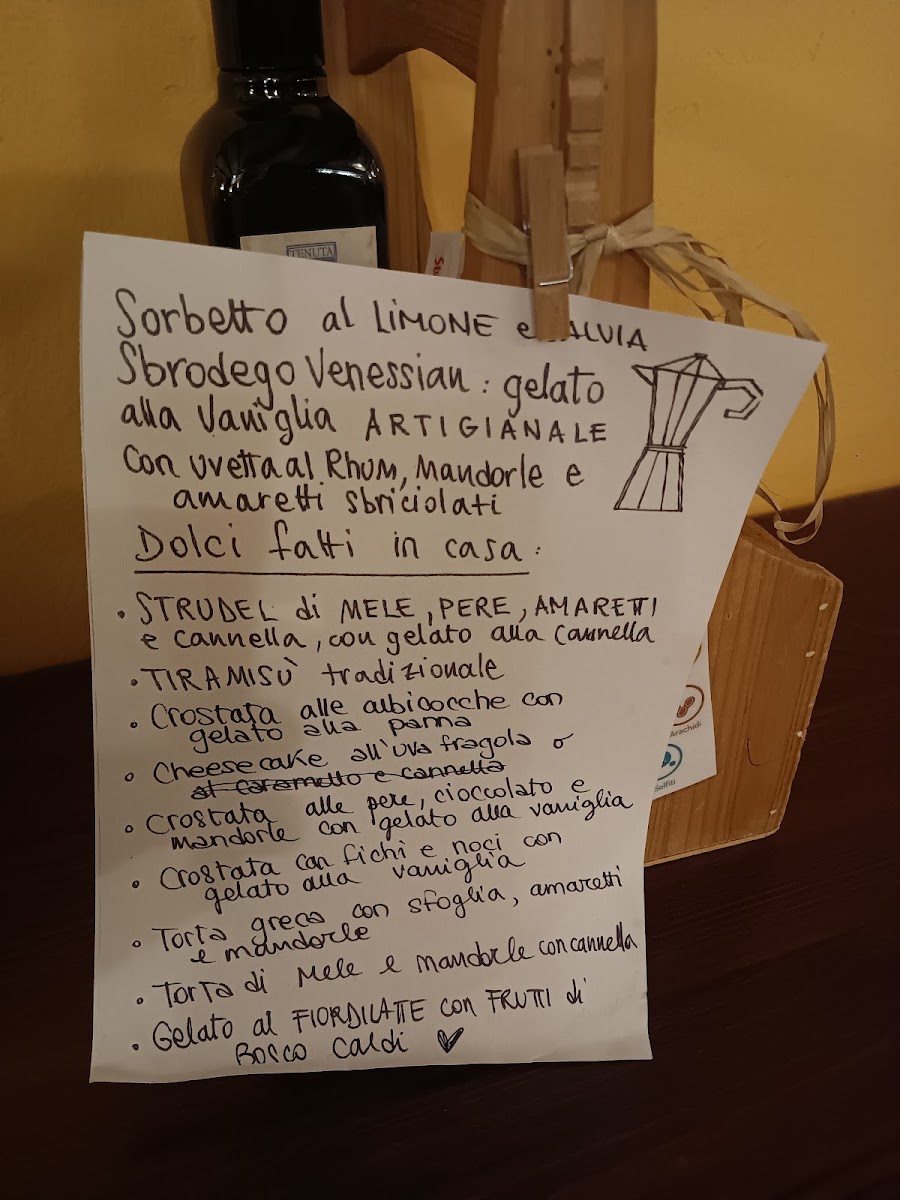 TENUTA
Sorbetto al LIMONE e SALVIA
Sbrodego Venessian: gelato
alla Vaniglia ARTIGIANALE
con uvetta al Rhum, Mandorle e
amaretti sbriciolati
Dolci fatti in casa:
• STRUDEL di MELE, PERE, AMARETTI
e cannella, con gelato alla cannella
• TIRAMISÙ tradizionale
• Crostata alle albicocche con
gelato alla panna
• Cheese cake all'uva fragola o
al caramello e cannella
• Crostata alle pere, cioccolato e
mandorle con gelato alla vaniglia
• Crostata con fichi e noci con
gelato alla vaniglia
• Torta greca con sfoglia, amaretti
e mandorle
• Torta di Mele e mandorle con cannella
• Gelato al FIORDILATTE con FRUTTI di
BOSCO caldi
Arachidi
Solfiti